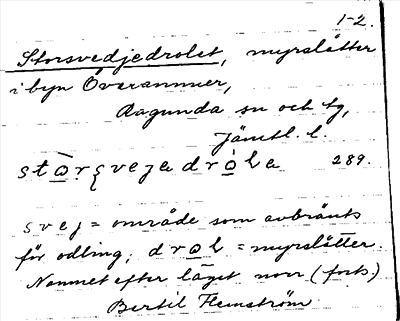 1-2.
Storsvedjedrolet, myrslåtter
i byn Överammer,
Ragunda sn och tg,
Jämtl. l.
289.
svej = område som avbränts
för odling, drol = myrslåtter.
Namnet efter läget norr (forts.)
Bertil Flemström